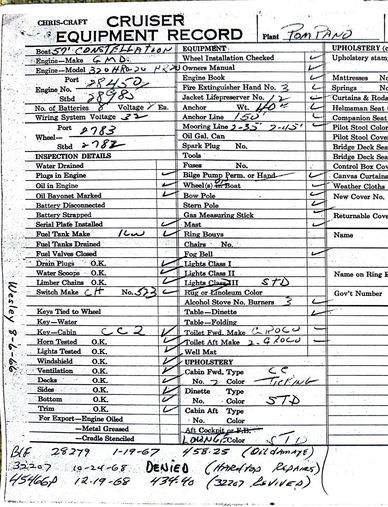 CHRIS-CRAFT CRUISER EQUIPMENT RECORD Plant POMPANO
Boat 57' CONSTELLATION
Engine—Make G.M.D.
Engine—Model
Engine No. Port
Stbd
No. of Batteries 8 Voltage Ea.
Wiring System Voltage 32
Wheel— Port 2783
Stbd 2782
INSPECTION DETAILS
Water Drained
Plugs in Engine
Oil in Engine
Oil Bayonet Marked
Battery Disconnected
Battery Strapped
Serial Plate Installed
Fuel Tank Make
Fuel Tanks Drained
Fuel Valves Closed
Drain Plugs O.K.
Water Scoops O.K.
Limber Chains O.K.
Switch Make CH No. 523
Keys Tied to Wheel
Key—Water
Key—Cabin CC2
Horn Tested O.K.
Lights Tested O.K.
Windshield O.K.
Ventilation O.K.
Decks O.K.
Sides O.K.
Bottom O.K.
Trim O.K.
For Export—Engine Oiled
—Metal Greased
—Cradle Stenciled
EQUIPMENT
Wheel Installation Checked
Owners Manual
Engine Book
Fire Extinguisher Hand No. 3
Jacket Lifepreserver No. 12
Anchor Wt. 40#
Anchor Line 150'
Mooring Line 2-35' 2-45'
Oil Gal. Can
Spark Plug No.
Tools
Fuses No.
Bilge Pump Perm. or Hand
Wheel(s) in Boat
Bow Pole
Stern Pole
Gas Measuring Stick
Mast
Ring Bouys
Chairs No.
Fog Bell
Lights Class I
Lights Class II
Lights Class III STD
Rug or Linoleum Color
Alcohol Stove No. Burners 3
Table—Dinette
Table—Folding
Toilet Fwd. Make GROCO
Toilet Aft Make 2-GROCO
Well Mat
UPHOLSTERY
Cabin Fwd. Type CC
No. 2 Color TICKING
Dinette Type
No. Color STD
Cabin Aft Type
No. Color
Aft Cockpit or F.B.
LOUNGE Color STD
UPHOLSTERY (
Upholstery stamp
Mattresses No
Springs No
Curtains & Rods
Helmsman Seat
Companion Seat
Pilot Stool Color
Pilot Stool Cover
Bridge Deck Sea
Bridge Deck Sea
Control Box Cov
Canvas Curtains
Weather Cloths
New Cover No.
Returnable Cove
Name
Name on Ring B
Gov't Number
Wesley 8-6-66
28279 1-19-67 458.25 (Oil damage)
32207 10-24-68 DENIED (HARDTOP REPAIRS)
12-19-68 434.40 (32207 REVIVED)